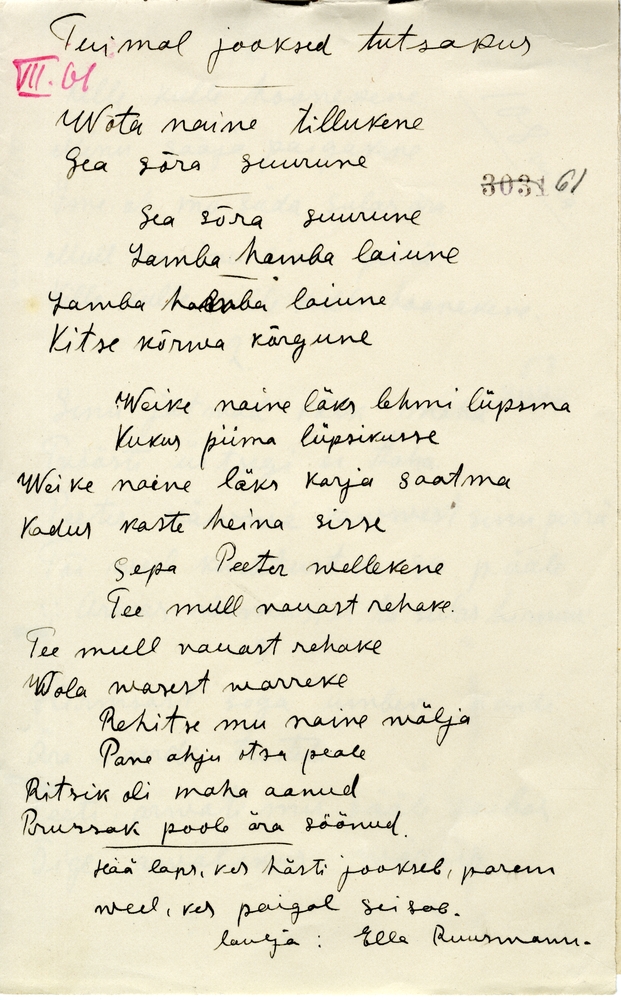 Tuimal jooksed tutsakus
VII. 61
Wõta naine tillukene
Sea sõra suurune
3031 61
Sea sõra suurune
Lamba hamba laiune
Lamba hamba laiune
Kitse kõrwa kõrgune
Weike naine läks lehmi lüpsma
Kukus piima lüpsikusse
Weike naine läks karja saatma
Kadus kaste heina sisse
Sepa Peeter wellekene
Tee mull rauast rehake.
Tee mull rauast rehake
Wola wasest warreke
Rehitse mu naine wälja
Pane ahju otsa peale
Ritsik oli maha aanud
Prussak poole ära söönud.
Hää laps, kes hästi jookseb, parem
weel, kes paigal seisab.
laulja : Ella Ruusmann.